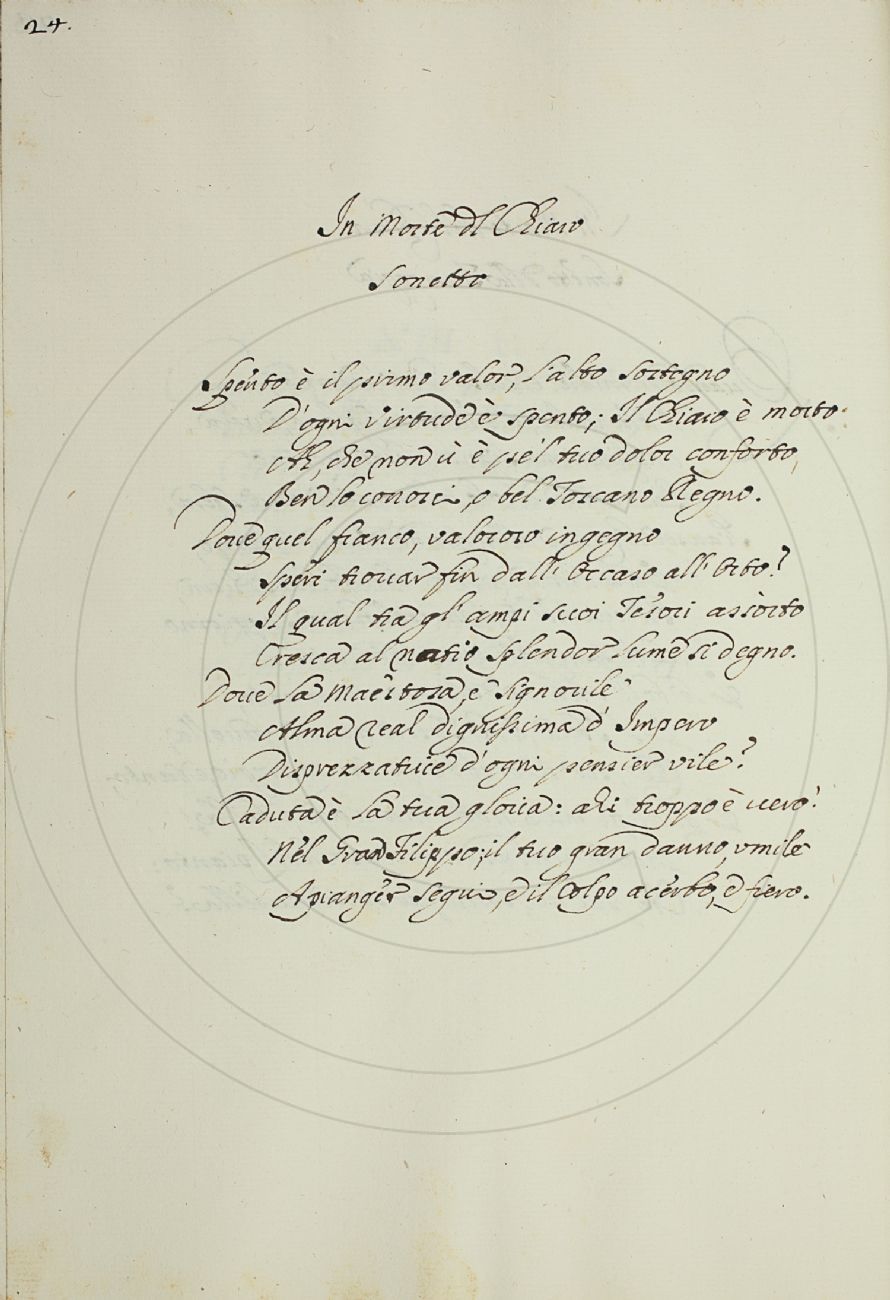 24.
In Morte dl Chiaro
Sonetto
Spento è il primo valor, l'alto sostegno
D'ogni virtude è spento; Il Chiaro è morto
Ah, che non u' è pe'l tuo dolor conforto,
Ben lo conosci, o bel Toscano Regno.
Doue quel franco, valoroso ingegno
Speri trouar fin dall' Occaso all' Orto?
Il qual tra gl' ampi suoi Tesori assorto
Cresca al natio splendor lume sì degno.
Doue la Maestosa, e Signorile
Alma real dignissima d' Impero
Disprezzatrice d'ogni pensier vile?
Caduta è la tua gloria: ahi troppo è uero!
Nel Gran Filippo; il tuo gran danno, vmile
A pianger segui, e il colpo acerbo, e fiero.